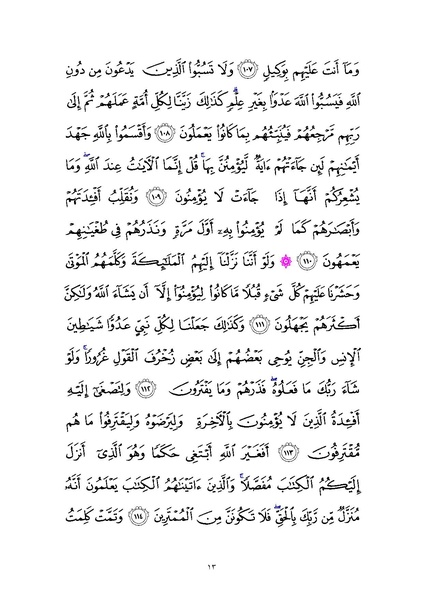 وَمَآ أَنتَ عَلَيْهِم بِوَكِيلٍ ۝١٠٧ وَلَا تَسُبُّوا۟ ٱلَّذِينَ يَدْعُونَ مِن دُونِ
ٱللَّهِ فَيَسُبُّوا۟ ٱللَّهَ عَدْوًۢا بِغَيْرِ عِلْمٍۢ ۗ كَذَٰلِكَ زَيَّنَّا لِكُلِّ أُمَّةٍ عَمَلَهُمْ ثُمَّ إِلَىٰ
رَبِّهِم مَّرْجِعُهُمْ فَيُنَبِّئُهُم بِمَا كَانُوا۟ يَعْمَلُونَ ۝١٠٨ وَأَقْسَمُوا۟ بِٱللَّهِ جَهْدَ
أَيْمَٰنِهِمْ لَئِن جَآءَتْهُمْ ءَايَةٌ لَّيُؤْمِنُنَّ بِهَا ۚ قُلْ إِنَّمَا ٱلْءَايَٰتُ عِندَ ٱللَّهِ ۖ وَمَا
يُشْعِرُكُمْ أَنَّهَآ إِذَا جَآءَتْ لَا يُؤْمِنُونَ ۝١٠٩ وَنُقَلِّبُ أَفْـِٔدَتَهُمْ
وَأَبْصَٰرَهُمْ كَمَا لَمْ يُؤْمِنُوا۟ بِهِۦٓ أَوَّلَ مَرَّةٍ وَنَذَرُهُمْ فِى طُغْيَٰنِهِمْ
يَعْمَهُونَ ۝١١٠ ۞ وَلَوْ أَنَّنَا نَزَّلْنَآ إِلَيْهِمُ ٱلْمَلَٰٓئِكَةَ وَكَلَّمَهُمُ ٱلْمَوْتَىٰ
وَحَشَرْنَا عَلَيْهِمْ كُلَّ شَىْءٍ قُبُلًا مَّا كَانُوا۟ لِيُؤْمِنُوٓا۟ إِلَّآ أَن يَشَآءَ ٱللَّهُ وَلَٰكِنَّ
أَكْثَرَهُمْ يَجْهَلُونَ ۝١١١ وَكَذَٰلِكَ جَعَلْنَا لِكُلِّ نَبِىٍّ عَدُوًّا شَيَٰطِينَ
ٱلْإِنسِ وَٱلْجِنِّ يُوحِى بَعْضُهُمْ إِلَىٰ بَعْضٍ زُخْرُفَ ٱلْقَوْلِ غُرُورًا ۚ وَلَوْ
شَآءَ رَبُّكَ مَا فَعَلُوهُ ۖ فَذَرْهُمْ وَمَا يَفْتَرُونَ ۝١١٢ وَلِتَصْغَىٰٓ إِلَيْهِ
أَفْـِٔدَةُ ٱلَّذِينَ لَا يُؤْمِنُونَ بِٱلْءَاخِرَةِ وَلِيَرْضَوْهُ وَلِيَقْتَرِفُوا۟ مَا هُم
مُّقْتَرِفُونَ ۝١١٣ أَفَغَيْرَ ٱللَّهِ أَبْتَغِى حَكَمًا وَهُوَ ٱلَّذِىٓ أَنزَلَ
إِلَيْكُمُ ٱلْكِتَٰبَ مُفَصَّلًا ۚ وَٱلَّذِينَ ءَاتَيْنَٰهُمُ ٱلْكِتَٰبَ يَعْلَمُونَ أَنَّهُۥ
مُنَزَّلٌ مِّن رَّبِّكَ بِٱلْحَقِّ ۖ فَلَا تَكُونَنَّ مِنَ ٱلْمُمْتَرِينَ ۝١١٤ وَتَمَّتْ كَلِمَتُ
١٣